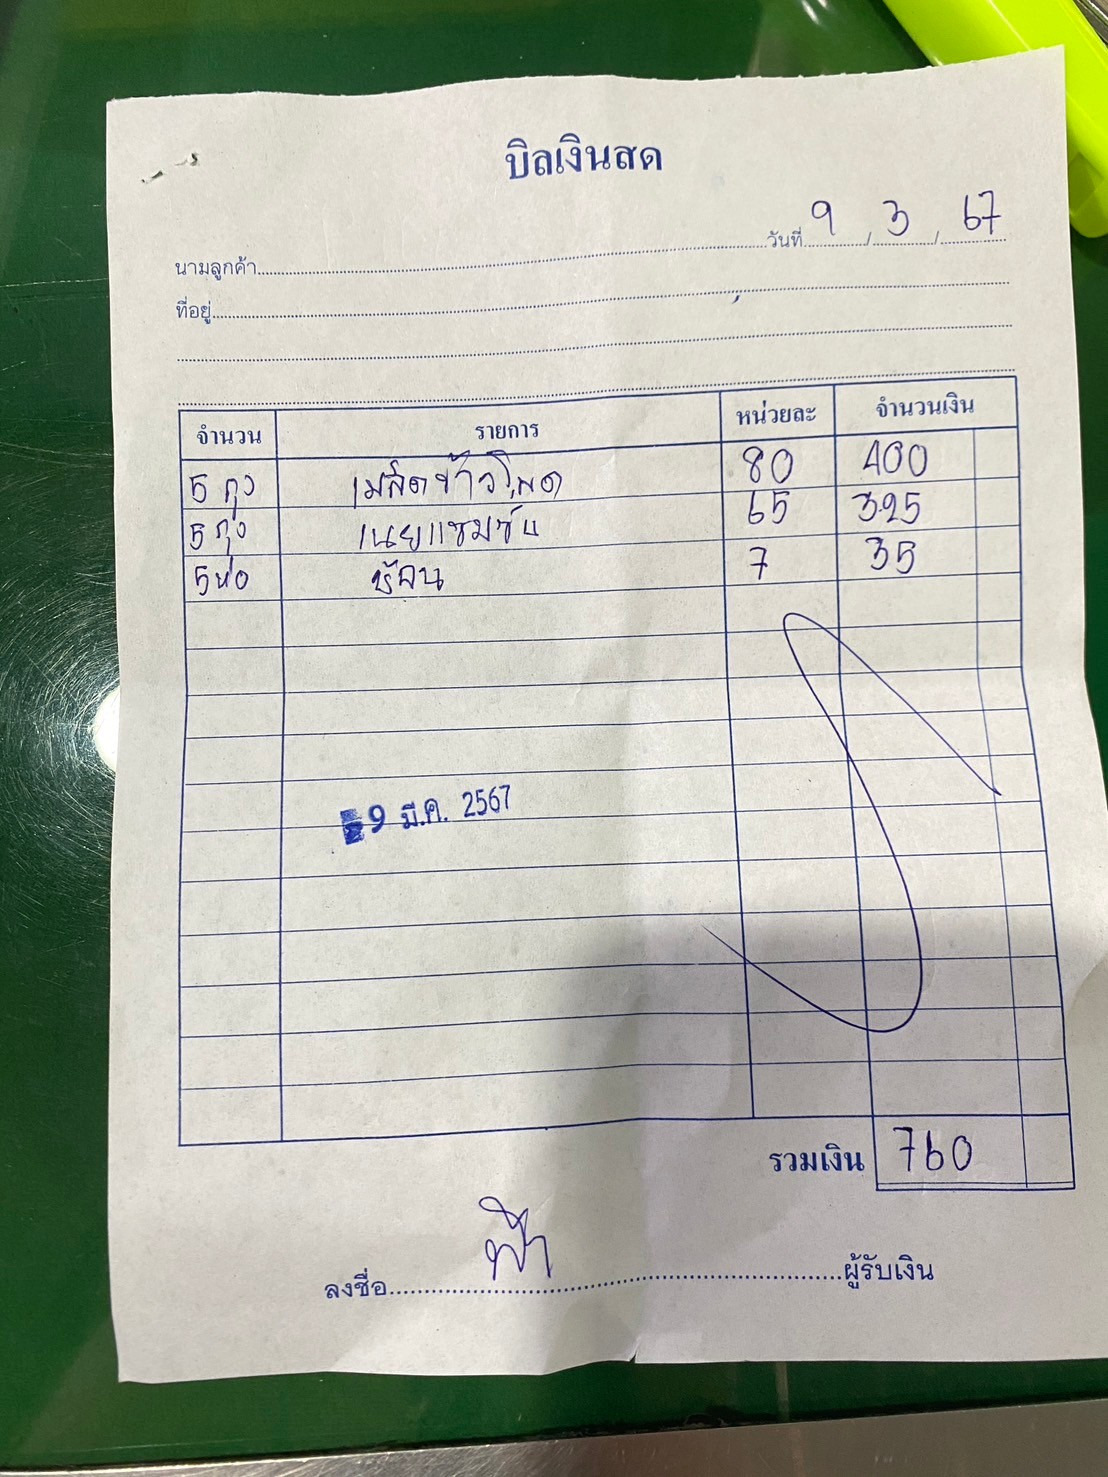 บิลเงินสด
วันที่ 9 / 3 / 67
นามลูกค้า
ที่อยู่
จำนวน รายการ หน่วยละ จำนวนเงิน
5 ถุง เมล็ดข้าวโพด 80 400
5 ถุง เนยแชมช์น 65 325
5 ห่อ ช้อน 7 35
9 มี.ค. 2567
รวมเงิน 760
ลงชื่อ ฟ้า ผู้รับเงิน